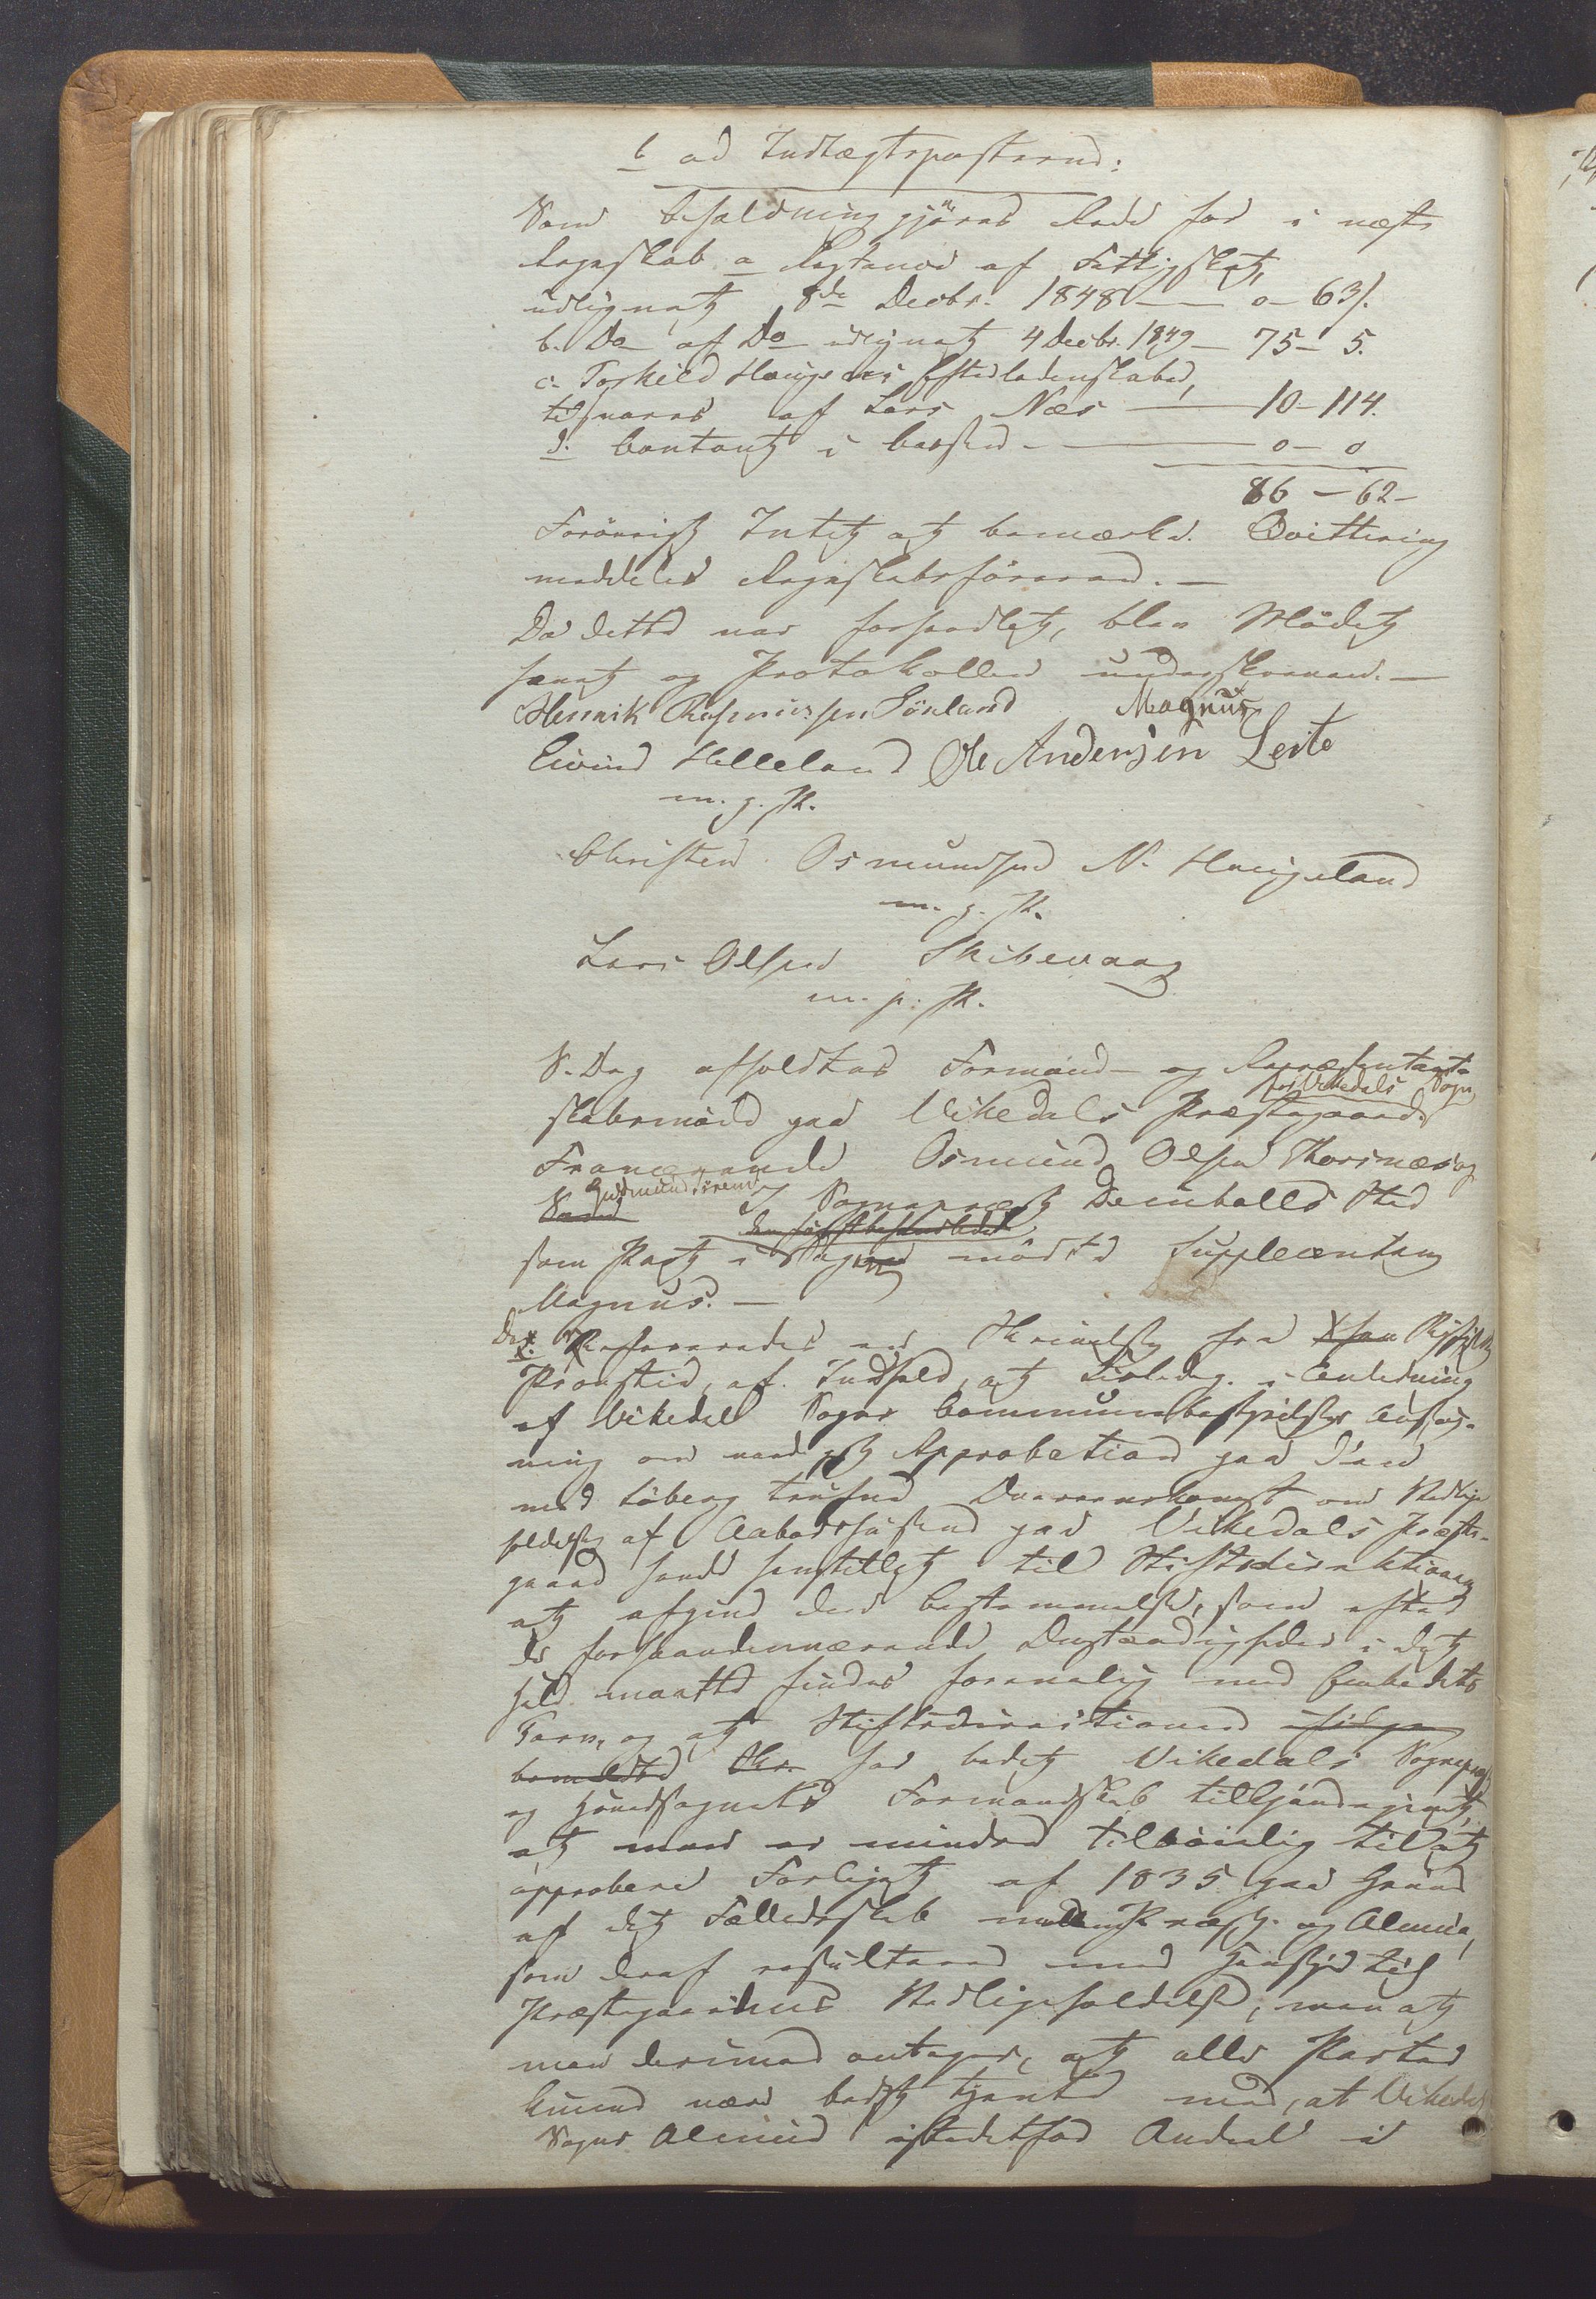 b ad Indtægtsposterne:
Som Beholdning gjöres Rede for i næste
Regnskab a Restance af Fattigskat,
udlignet 8de Decbr. 1848 — 0 – 63/.
b. Do af Do udlignet 4 Decbr. 1849 – 75 – 5.
c. Torkild Haugens Efterladenskaber,
tilsvares af Lars Næs — 10 – 114.
d. Contant i Cassen — 0 – 0
86 – 62 –
Forövrigt Intet at bemærke. Qvittering
meddeles Regnskabsföreren. —
Da dette var forhandlet, blev Mödet
hævet og Protokollen underskreven. —
Henrik Rasmussen Sönland Magnus
Eivind Helleland Ole Andersen Leite
m. p. P.
Christen Osmundsen N. Haugeland
m. p. P.
Lars Olsen Skibevaag
m. p. P.
S. Dag afholdtes Formand- og Repræsentant-
skabsmöde paa Vikedals Præstegaard for Vikedals Sogn
Fraværende Osmund Olsen Thorsnæs og
Gudmund I Sognepræst Deinbolls Sted
som Part i Sagen mödte Suppleanten
Magnus. —
Refereredes en Skrivelse fra
Provstie, af Indhold, at Kirkedep. i Anledning
af Vikedal Sogns Communebestyrelses Ansög-
ning om naadigst Approbation paa den
med Löberg trufne Overeenskomst om Vedlige-
holdelse af Aabodshusene paa Vikedals Præste-
gaard havde henstillet til Stiftsdirektionen
at afgive den Bestemmelse, som efter
de forhaandenværende Omstændigheder i det
hele maatte findes foreenelig med Embedets
Tarv, og at Stiftsdirectionen
har bedet Vikedals Sognepræst
og Hovedsognets Formandskab tilkjendegivet,
at man er mindre tilböielig til at
approbere Forliget af 1835 paa Grund
af det Fælledsskab mellem Præst og Almue,
som deraf resulterer med Hensyn til
Præstegaardens Vedligeholdelse, men at
man derimod antager, at alle Parter
kunne være bedst tjente med, at Vikedals
Sogns Almue istedetfor Andeel i